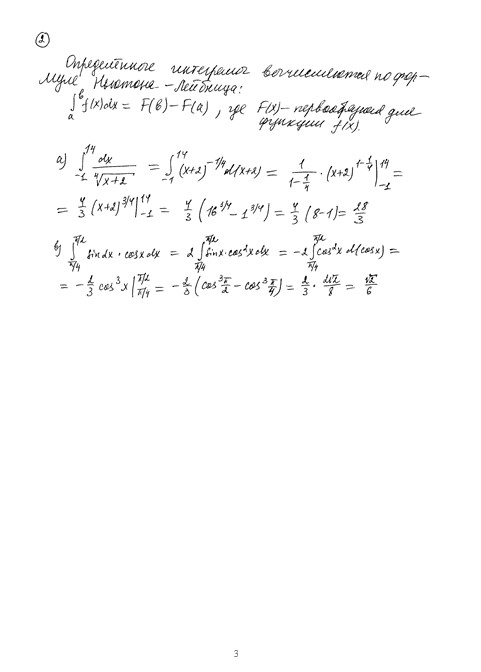 ②
Определённые интегралы вычисляются по фор-
муле Ньютона-Лейбница:
∫ₐᵇ f(x)dx = F(b) - F(a), где F(x) - первообразная для
функции f(x).
а) ∫₋₁¹⁴ dx/⁴√(x+2) = ∫₋₁¹⁴ (x+2)^(-1/4) d(x+2) = 1/(1-1/4) · (x+2)^(1-1/4) |₋₁¹⁴ =
= 4/3 (x+2)^(3/4) |₋₁¹⁴ = 4/3 (16^(3/4) - 1^(3/4)) = 4/3 (8-1) = 28/3
б) ∫_(π/4)^(π/2) sin2x · cosx dx = 2 ∫_(π/4)^(π/2) sinx · cos²x dx = -2 ∫_(π/4)^(π/2) cos²x d(cosx) =
= -2/3 cos³x |_(π/4)^(π/2) = -2/3 (cos³ π/2 - cos³ π/4) = 2/3 · 2√2/8 = √2/6
3